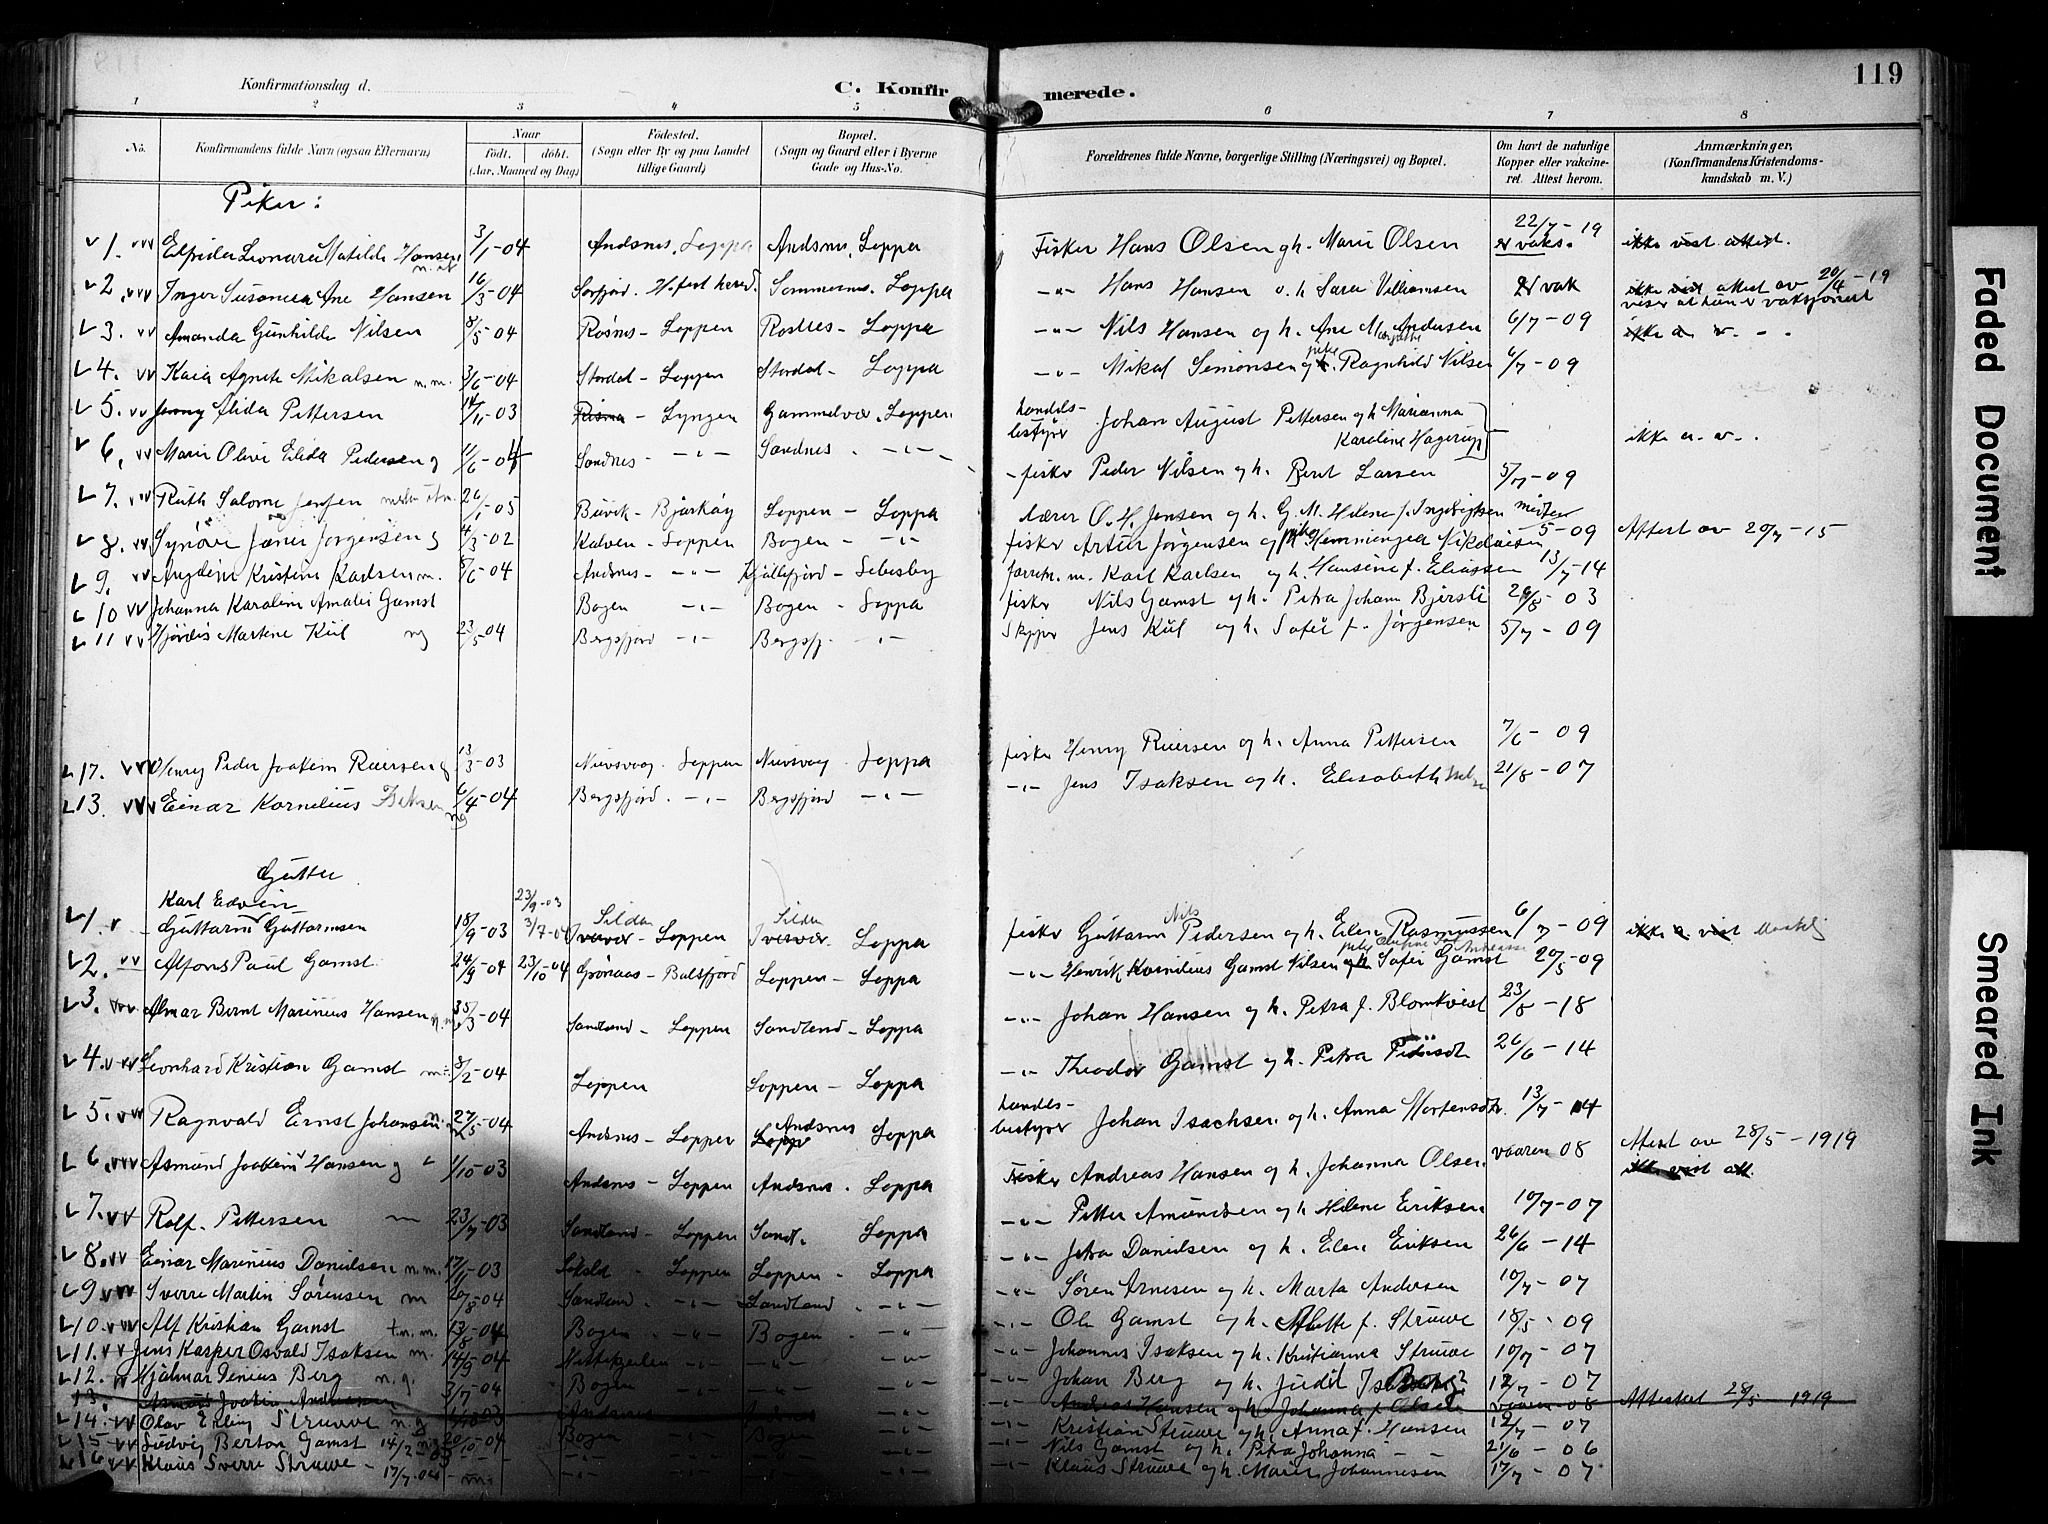 119
Konfirmationsdag d.
C. Konfirmerede.
1 2 3 4 5 6 7 8
No. Konfirmandens fulde Navn (ogsaa Efternavn) Naar født. døbt. (Aar, Maaned og Dag) Fødested. (Sogn eller By og paa Landet tillige Gaard) Bopæl. (Sogn og Gaard eller i Byerne Gade og Hus-No. Forældrenes fulde Navne, borgerlige Stilling (Næringsvei) og Bopæl. Om havt de naturlige Kopper eller vakcineret. Attest herom. Anmærkninger, (Konfirmandens Kristendomskundskab m. V.)
Piker:
1. Elfrida Leonara Matilde Hansen 3/1-04 Andsnes, Loppa Andsnes, Loppa Fisker Hans Olsen og h. Marie Olsen 22/7-19 er vaks. ikke vist attest.
2. Inger Susanna Ane Hansen 16/3-04 Sørfjord. Sommernes. Loppa -"- Hans Hansen o. h Sara Vilhamsen er vak ikke vist attest av 20/4-19 viser at hun er vaksjonert
3. Amanda Gunhilda Nilsen 8/5-04 Rosnes - Loppen Rosnes - Loppa -"- Nils Hansen og h. Ane Margrethe Andersen 6/7-09 ikke a. v.
4. Kaia Agnete Mikalsen n.m. 3/6-04 Stordal - Loppen Stordal - Loppa -"- Mikal Simonsen og pike Ragnhild Nilsen 6/7-09
5. Jenny Alida Pettersen 14/11-03 - Lyngen Gammelvær. Loppen. handelsbestyrer Johan August Pettersen og h Marianna Karoline Hagerup
6. Marie Olive Elida Pedersen g 11/6-04 Sandnes - -"- Sandnes -"- - fisker Peder Nilsen og h. Berit Larsen 5/7-09 ikke a. v.
7. Ruth Salome Jensen 26/1-05 Buvik - Bjarkøy Loppen - Loppa Lærer O. H. Jensen og h. G. M. Helene f. Ingebrigtsen
8. Synøve Janie Jørgensen g 4/3-02 Kalven - Loppen Bogen - -"- fisker Artur Jørgensen og pike Hemmingea Nikolaisen 5-09 Attest av 20/7-15
9. Angdine Kristine Karlsen m. 8/6-04 Andsnes - -"- Kjøllefjord - Lebesby forretn. m. Karl Karlsen og h. Hansine f. Eliassen 13/7-14
10 Johanna Karoline Amalie Gamst Bogen -"- Bogen - Loppa fisker Nils Gamst og h. Petra Johann Bjersli 29/8-03
11 Hjørdis Martene Kiil ng 23/5-04 Bergsfjord -"- Bergsfj. -"- Skipper Jens Kiil og h. Sofie f. Jørgensen 5/7-09
12. Henry Peder Joakim Reiersen g 13/3-03 Nuvsvaag. Loppen Nuvsvag. Loppa fisker Henry Reiersen og h. Anna Pettersen 7/6-09
13. Einar Kornelius Isaksen ng 6/4-04 Bergsfjord. -"- Bergsfjord -"- -"- Jens Isaksen og h. Elisabeth 21/8-07
Gutter
1. Karl Edvin Guttarm Guttarmsen 18/9-03 23/9-03 3/7-04 Silda - Loppen Silda Loppa fisker Guttarm Nils Pedersen og h. Elen Rasmussen 6/7-09 ikke a vist
2. Alfons Paul Gamst 24/9-04 23/10-04 Grønaas - Balsfjord Loppen - Loppa -"- Henrik Kornelius Gamst Nilsen og Sofie Gamst 20/5-09
3. Almar Bernt Marinius Hansen n.m. /3-04 Sandland - Loppen Sandland - Loppa -"- Johan Hansen og h. Petra f. Blomkvist 23/8-18
4. Leonhard Kristian Gamst m 8/2-04 Loppen Loppen - Loppa -"- Theodor Gamst og h. Petra 26/6-14
5. Ragnvald Ernst Johansen 27/5-04 Andsnes - Loppen Andsnes Loppa handelsbestyrer Johan Isachsen og h. Anna Mortensdtr. 13/7-14
6. Asmund Joakim Hansen g 1/10-03 Andsnes - Loppen Andsnes. Loppa Fisker Andreas Hansen og h. Johanna Olsen. vaaren 08 Attest av 28/5-1919 ikke vist att.
7. Rolf Pettersen m 23/7-03 Sandland - Loppen Sandl. Loppa -"- Petter Amundsen og h Helene Eriksen 10/7-07
8. Einar Marinius Danielsen n.m. 17/11-03 - Loppen Loppen - Loppa -"- Petra Danielsen og h. Elen Eriksen 26/6-14
9. Sverre Martin Sørensen m 20/8-04 Sandland. -"- Sandland. -"- -"- Søren Arnesen og h. Marta Andersen 10/7-07
10. Alf Kristian Gamst t.m.m. 13/8-04 Bogen -"- Bogen -"- -"- Ole Gamst og h. Mette f. Struwe 18/5-09
11. Jens Kasper Osvald Isaksen m. 14/9-04 -"- -"- -"- -"- Johannes Isaksen og h. Kristianna Struwe 10/7-07
12. Hjalmar Denius Berg n.g. 3/7-04 Bogen -"- -"- Johan Berg og h. Judit Berg? 12/7-07
13. Asmund Joakim Andreassen Andsnes -"- Andreas Hansen og h. Johanna f. Olsen vaaren 08 Attestert 28/5-1919
14. Olav Erling Struwe n.g Bogen Bogen -"- Kristian Struwe og h. Anna f. Hansen 12/7-07
15. Ludvig Berton Gamst 14/2 20/10-04 -"- Nils Gamst og h. Petra Johanna -"- 21/6-06
16. Klaus Sverre Struwe - 17/7-04 -"- -"- -"- Klaus Struwe og h. Marie Johannesen 17/7-07
Faded Document
Smeared Ink